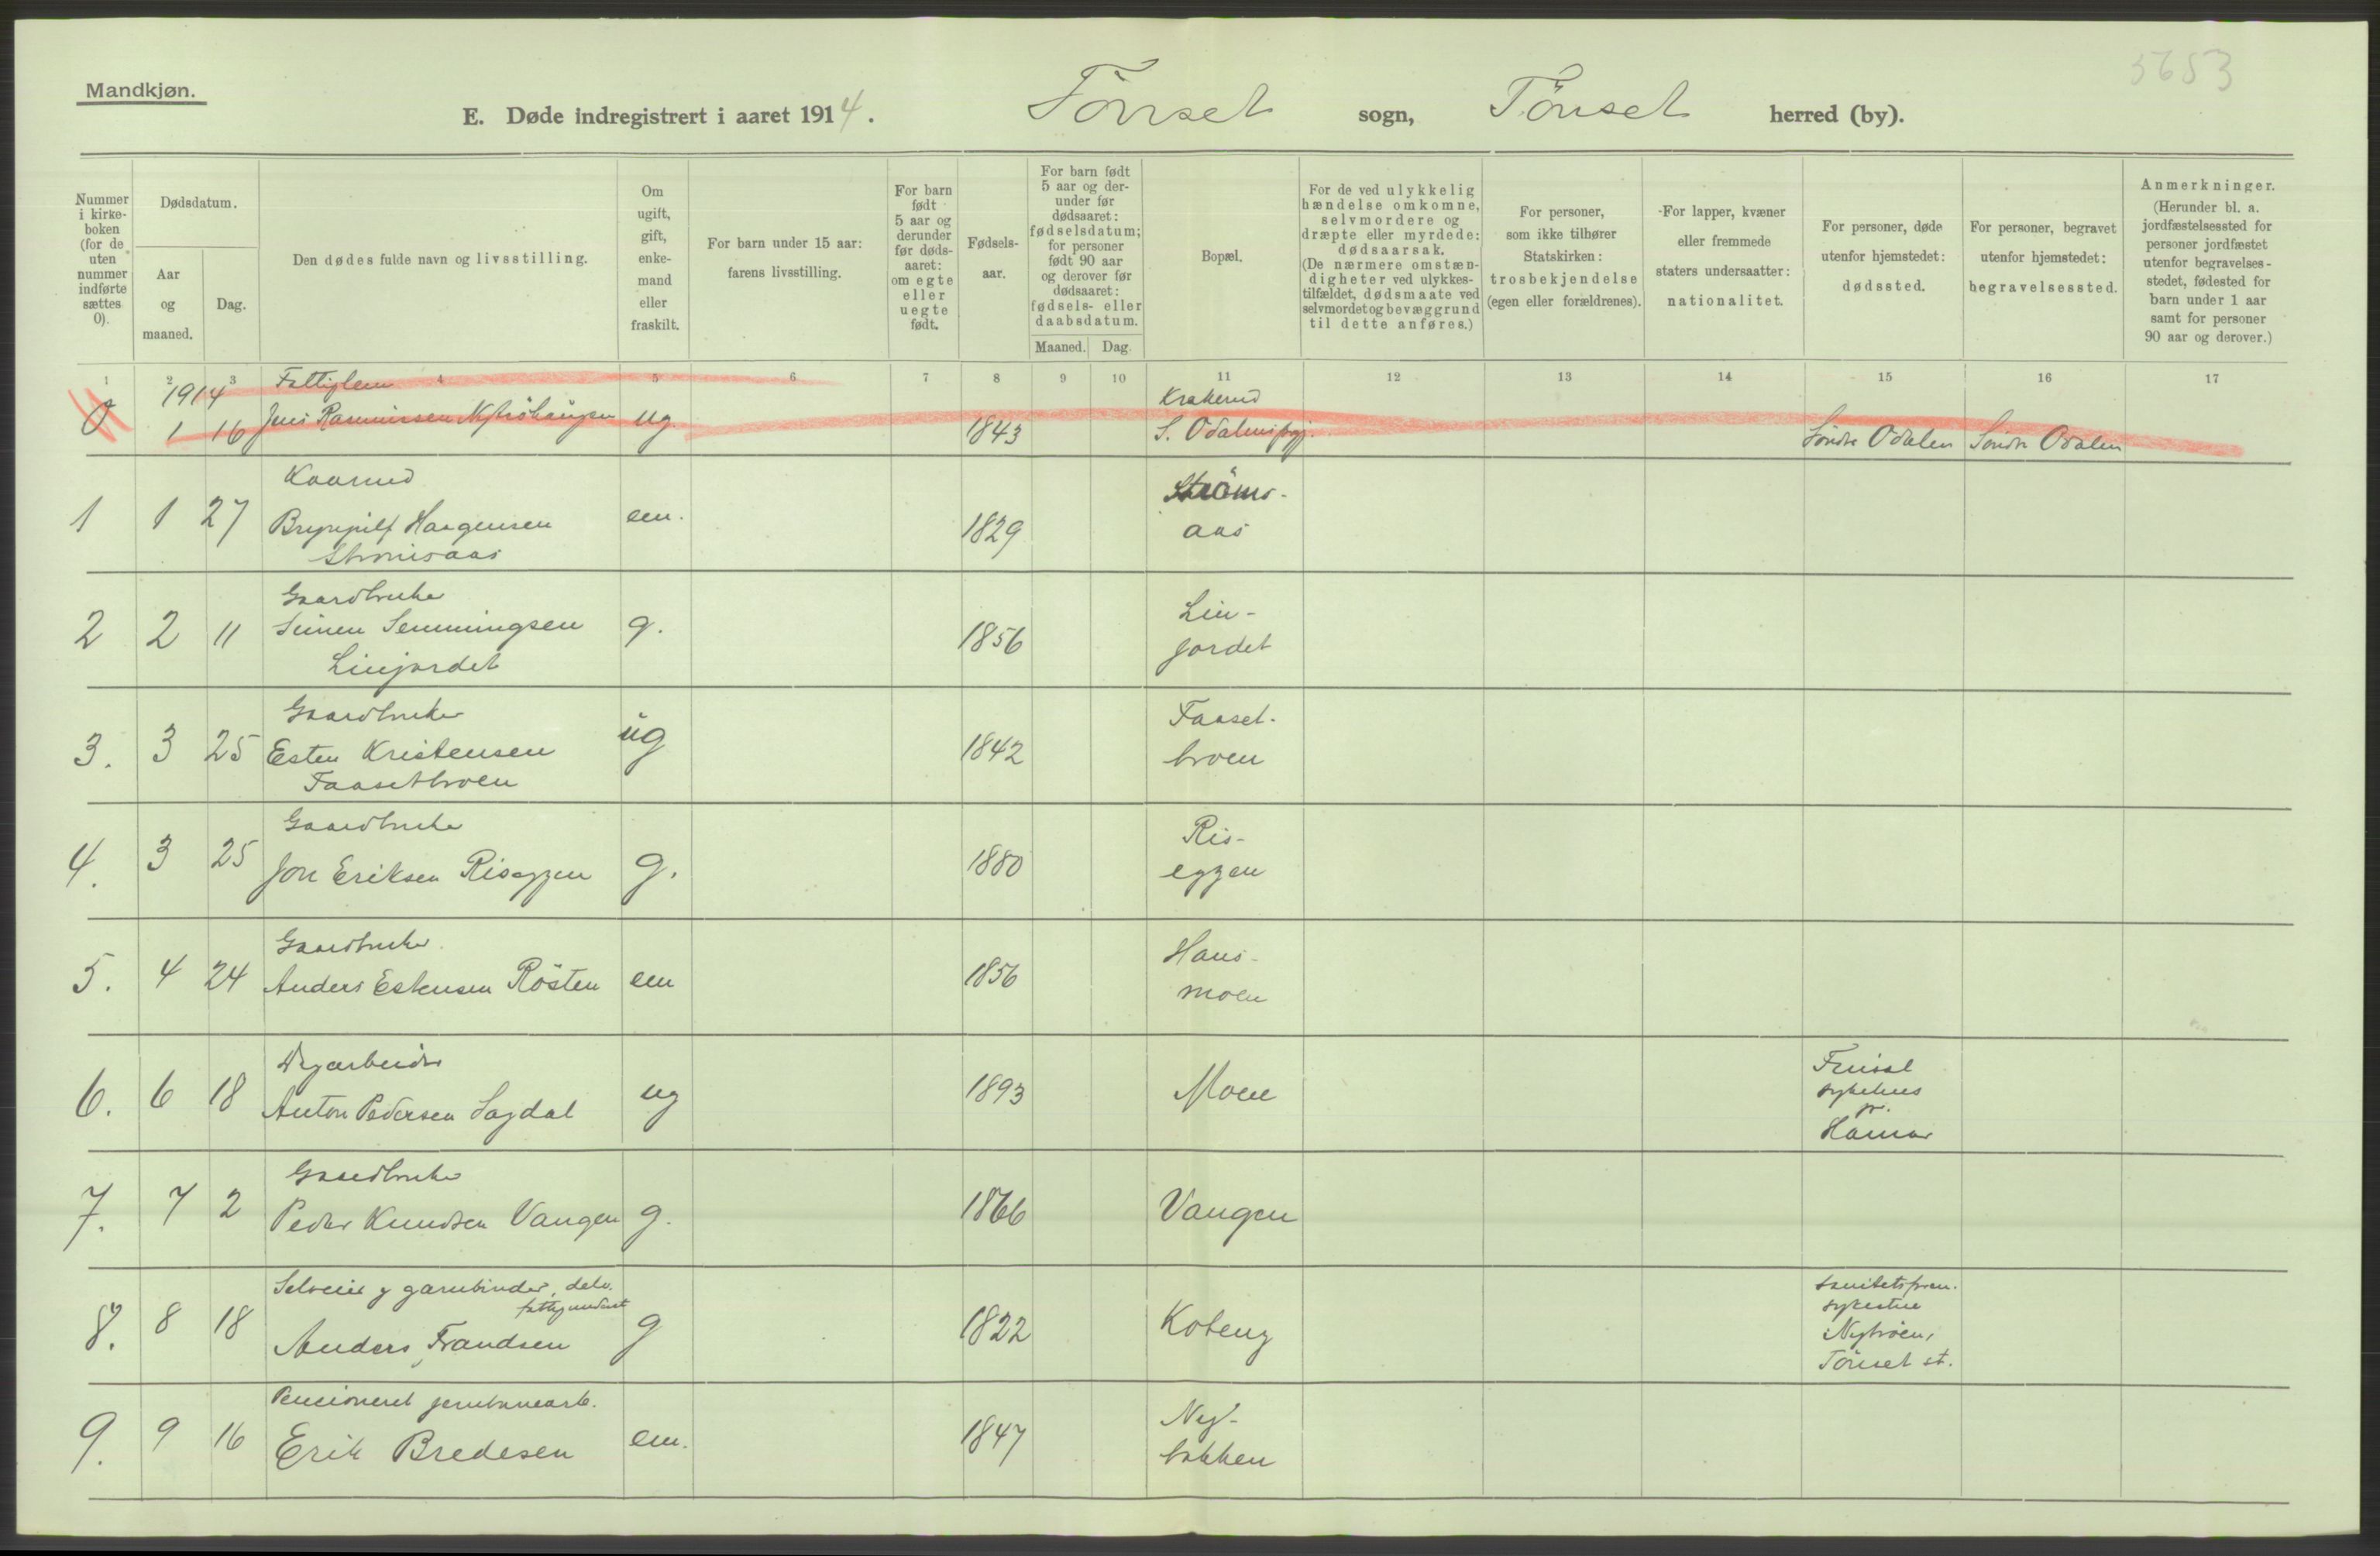 3653
Mandkjøn.
E. Døde indregistrert i aaret 1914. Tönset sogn, Tönset herred (by).
Nummer i kirkeboken (for de uten nummer indførte sættes 0).
Dødsdatum.
Aar og maaned.
Dag.
Den dødes fulde navn og livsstilling.
Om ugift, gift, enkemand eller fraskilt.
For barn under 15 aar: farens livsstilling.
For barn født 5 aar og derunder før dødsaaret: om egte eller uegte født.
Fødselsaar.
For barn født 5 aar og derunder før dødsaaret: fødselsdatum; for personer født 90 aar og derover før dødsaaret: fødsels- eller daabsdatum.
Maaned. Dag.
Bopæl.
For de ved ulykkelig hændelse omkomne, selvmordere og dræpte eller myrdede: dødsaarsak. (De nærmere omstændigheter ved ulykkestilfældet, dødsmaate ved selvmordet og bevæggrund til dette anføres.)
For personer, som ikke tilhører Statskirken: trosbekjendelse (egen eller forældrenes).
For lapper, kvæner eller fremmede staters undersaatter: nationalitet.
For personer, døde utenfor hjemstedet: dødssted.
For personer, begravet utenfor hjemstedet: begravelsessted.
Anmerkninger. (Herunder bl. a. jordfæstelsessted for personer jordfæstet utenfor begravelsesstedet, fødested for barn under 1 aar samt for personer 90 aar og derover.)
1 2 3 4 5 6 7 8 9 10 11 12 13 14 15 16 17
1914 Fattiglem Krakerud
0 1 16 Jens Rasmussen ug. 1843 S. Odalens Søndre Odalen Søndre Odalen
Kaarmd Ströms-
1 1 27 Brynjulf Haagensen em. 1829 aas
Strömsaas
Gaardbruker Lin-
2 2 11 Simen Semmingsen g. 1856 jordet
Linjordet
Gaardbruker Faaset-
3. 3 25 Esten Kristensen ug 1842 broen
Faasetbroen
Gaardbruker Ris-
4. 3 25 Jon Eriksen Riseggen g. 1880 eggen
Gaardbruker Haus-
5. 4 24 Anders Estensen Rösten em 1856 moen
Veiarbeider sykehus
6. 6 18 Anton Pedersen Sagdal ug 1893 Moen pr.
Hamar
Gaardbruker
7. 7 2 Peder Knudsen Vangen g. 1866 Vangen
Selveier g garnbinder, delv. Sanitetsforen.
fattigunderst sykestue
8. 8 18 Anders Frandsen g 1822 Koteng Nybroen,
Tönset st.
Pensioneret jernbanearb. Ny-
9. 9 16 Erik Bredesen em. 1847 bakken